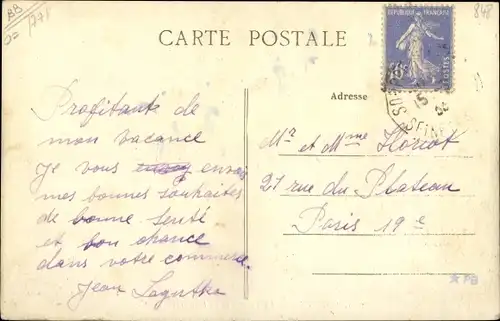 88
771
848
CARTE POSTALE
REPUBLIQUE FRANÇAISE
POSTES
Adresse
Profitant de
mon vacance
Je vous envois
mes bonnes souhaites
de bonne senté
et bon chance
dans votre commerce.
Jean
Mr et Mme Floriot
21 rue du Plateau
Paris 19e